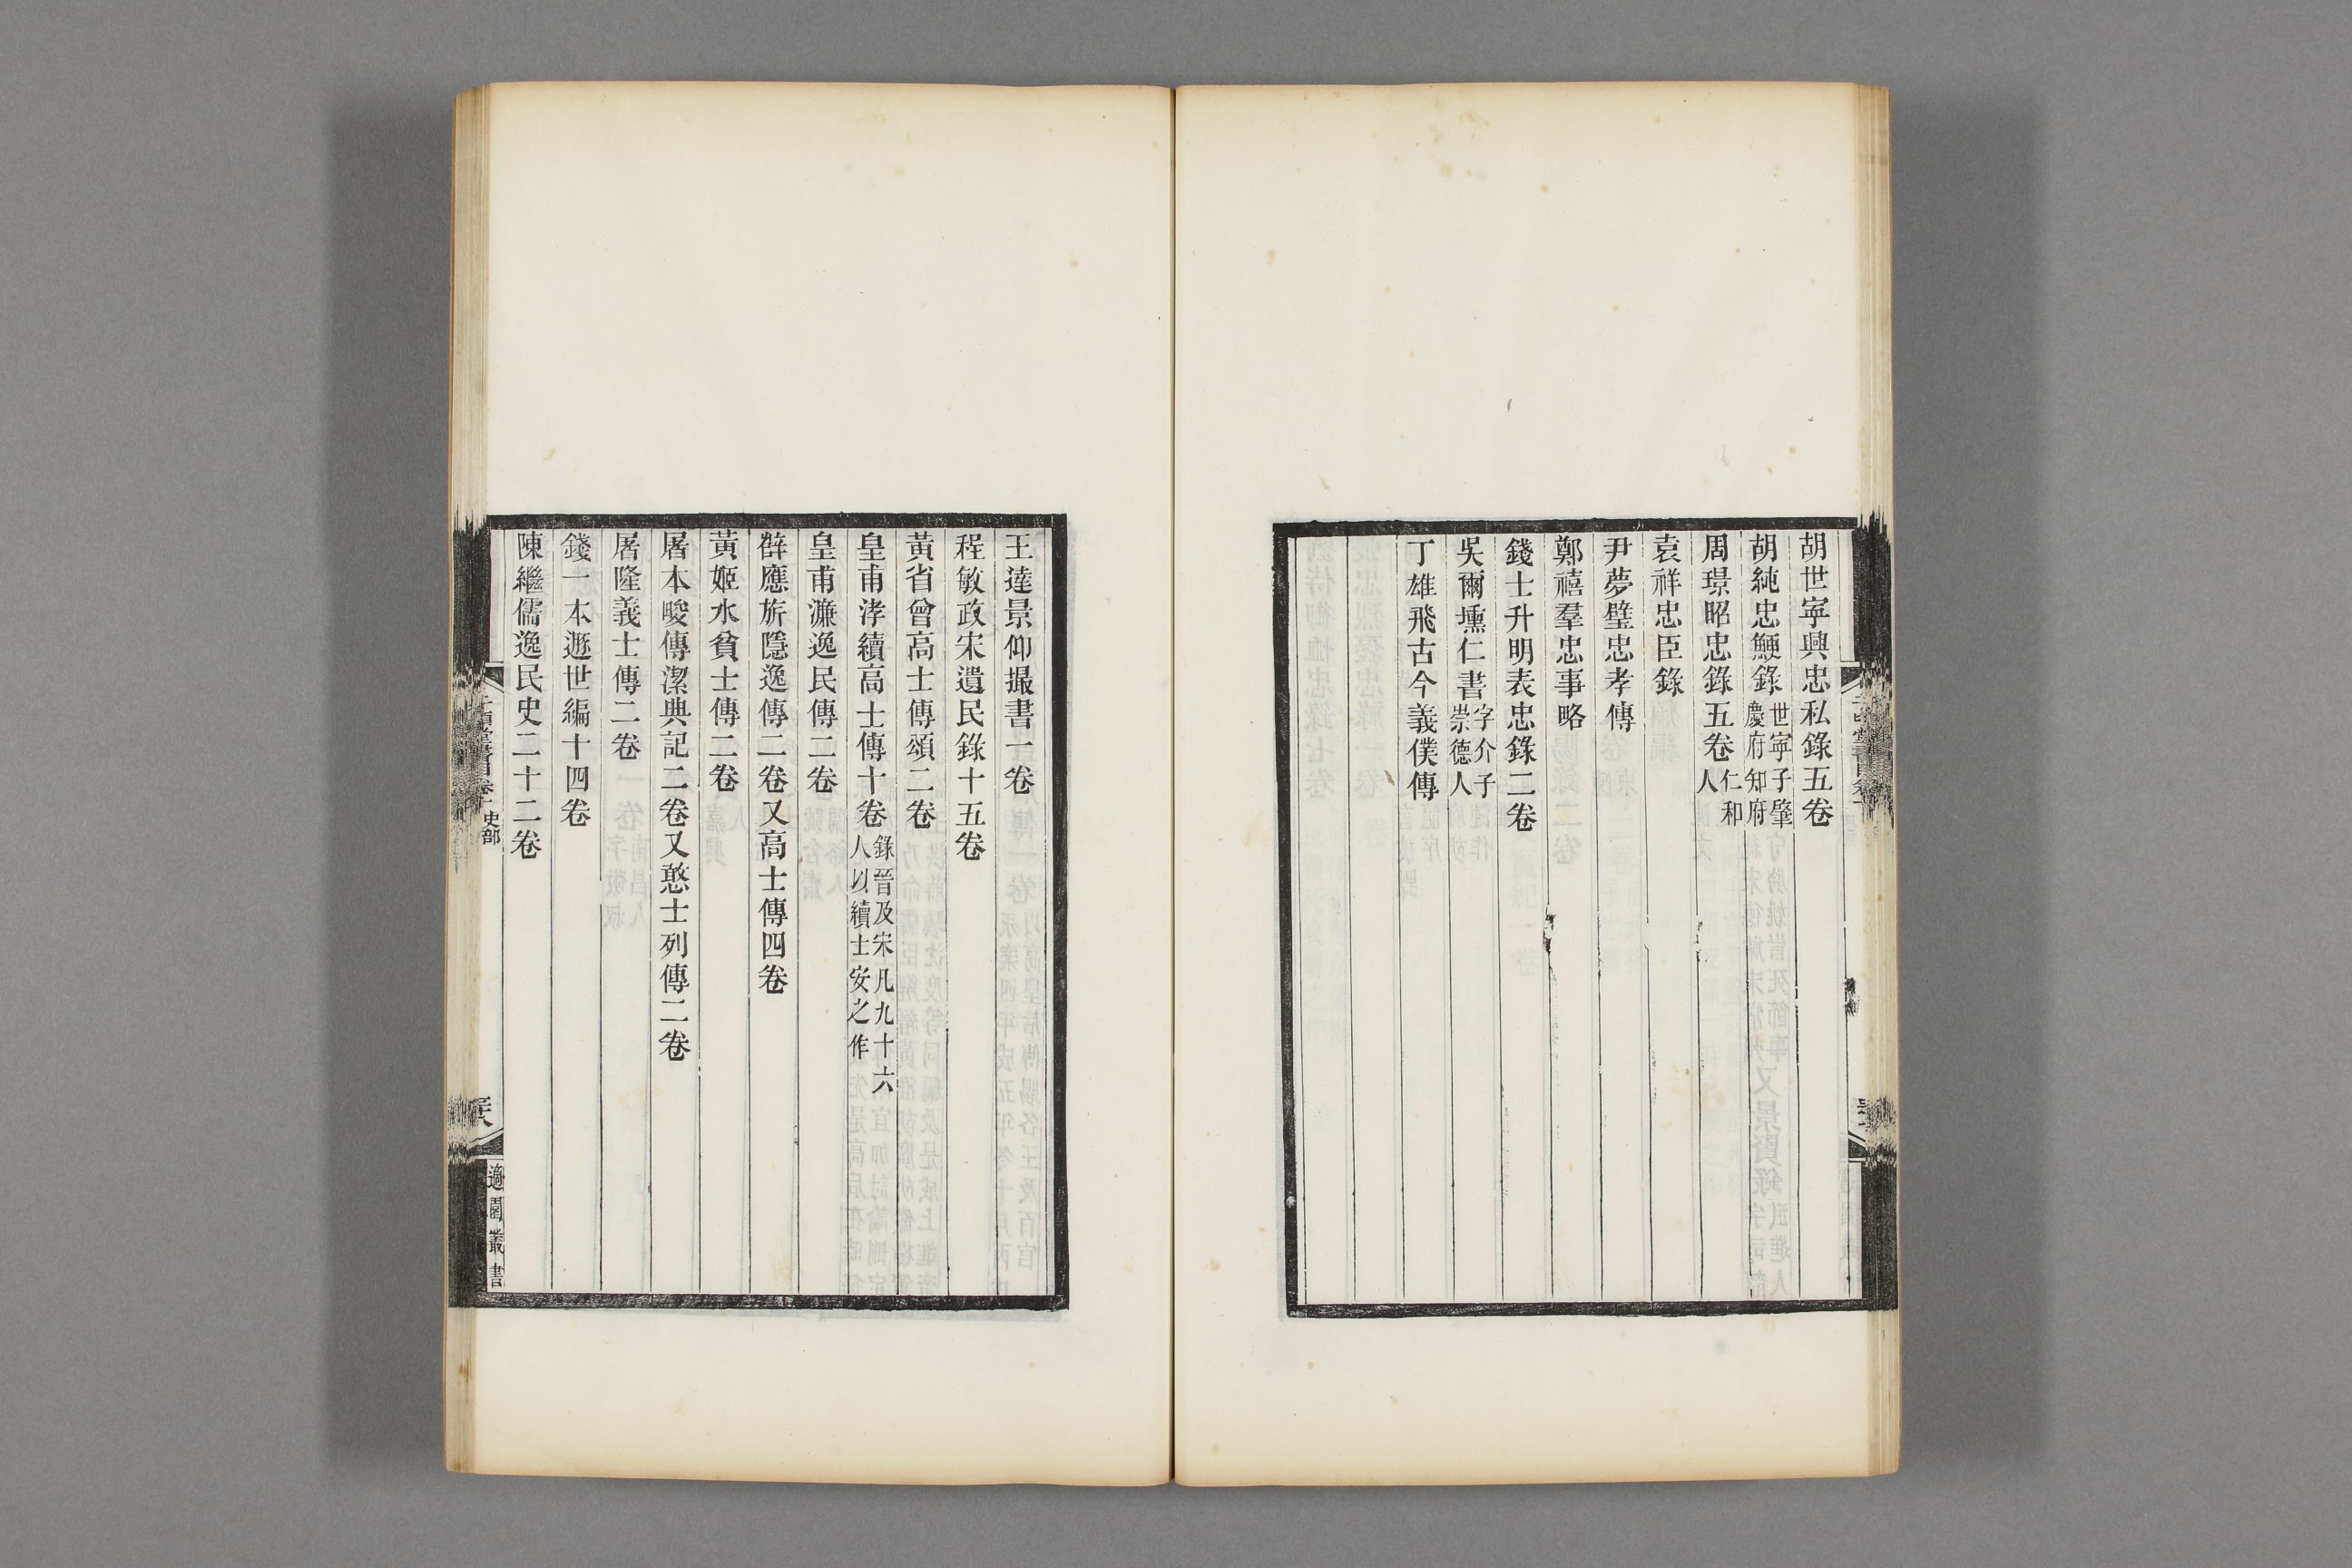 胡世寧興忠私錄五卷
胡純忠鯁錄世寧子肇慶府知府
周璟昭忠錄五卷仁和人
袁祥忠臣錄
尹夢璧忠孝傳
鄭禧羣忠事略
錢士升明表忠錄二卷
吳爾壎仁書字介子崇德人
丁雄飛古今義僕傳
王達景仰撮書一卷
程敏政宋遺民錄十五卷
黃省曾高士傳頌二卷
皇甫涍續高士傳十卷錄晉及宋凡九十六人以續士安之作
皇甫濂逸民傳二卷
薛應旂隱逸傳二卷又高士傳四卷
黃姬水貧士傳二卷
屠本畯傳潔典記二卷又憨士列傳二卷
屠隆義士傳二卷
錢一本遯世編十四卷
陳繼儒逸民史二十二卷
史部
適園叢書